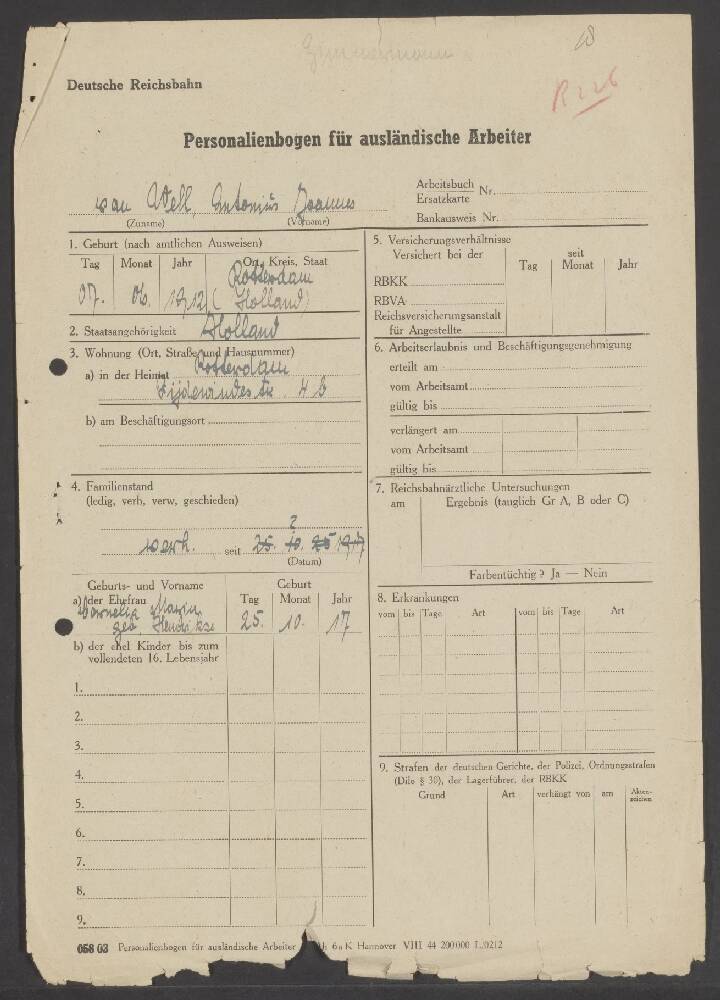 Zimmermann
18
Deutsche Reichsbahn
R 226
Personalienbogen für ausländische Arbeiter
van Well, Antonius Joannes
(Zuname) (Vorname)
Arbeitsbuch Nr.
Ersatzkarte
Bankausweis Nr.
1. Geburt (nach amtlichen Ausweisen)
Tag Monat Jahr Ort, Kreis, Staat
Rotterdam
07. 06. 1912 (Holland)
2. Staatsangehörigkeit Holland
3. Wohnung (Ort, Straße und Hausnummer)
a) in der Heimat Rotterdam
str. 4 B
b) am Beschäftigungsort
4. Familienstand
(ledig, verh, verw, geschieden)
?
verh. seit 25. 10. 25 1917
(Datum)
Geburts- und Vorname Geburt
a) der Ehefrau Tag Monat Jahr
Cornelia Maria
geb. Hendrikse 25. 10. 17
b) der ehel Kinder bis zum
vollendeten 16. Lebensjahr
1.
2.
3.
4.
5.
6.
7.
8.
9.
5. Versicherungsverhältnisse
Versichert bei der seit
Tag Monat Jahr
RBKK
RBVA
Reichsversicherungsanstalt
für Angestellte
6. Arbeitserlaubnis und Beschäftigungsgenehmigung
erteilt am
vom Arbeitsamt
gültig bis
verlängert am
vom Arbeitsamt
gültig bis
7. Reichsbahnärztliche Untersuchungen
am Ergebnis (tauglich Gr A, B oder C)
Farbentüchtig? Ja — Nein
8. Erkrankungen
vom bis Tage Art vom bis Tage Art
9. Strafen der deutschen Gerichte, der Polizei, Ordnungsstrafen
(Dilo § 30), der Lagerführer, der RBKK
Grund Art verhängt von am Akten-
zeichen
058 03 Personalienbogen für ausländische Arbeiter 6a K Hannover VIII 44 200000 L/0212